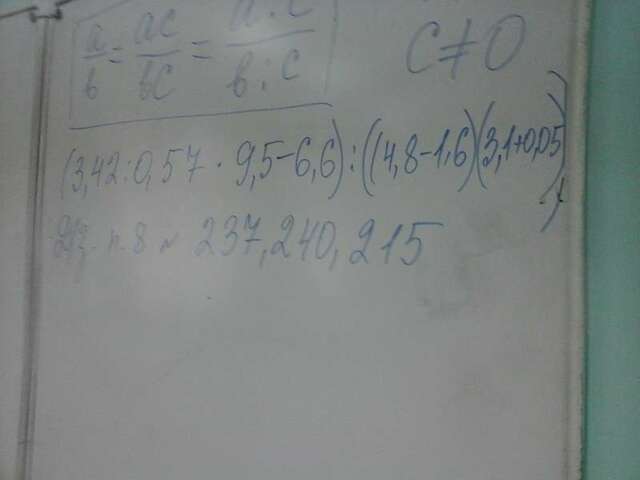 a/b = ac/bc = a:c/b:c c≠0
(3,42:0,57 · 9,5-6,6):((4,8-1,6)(3,1+0,05))
Дз. п.8 № 237, 240, 215